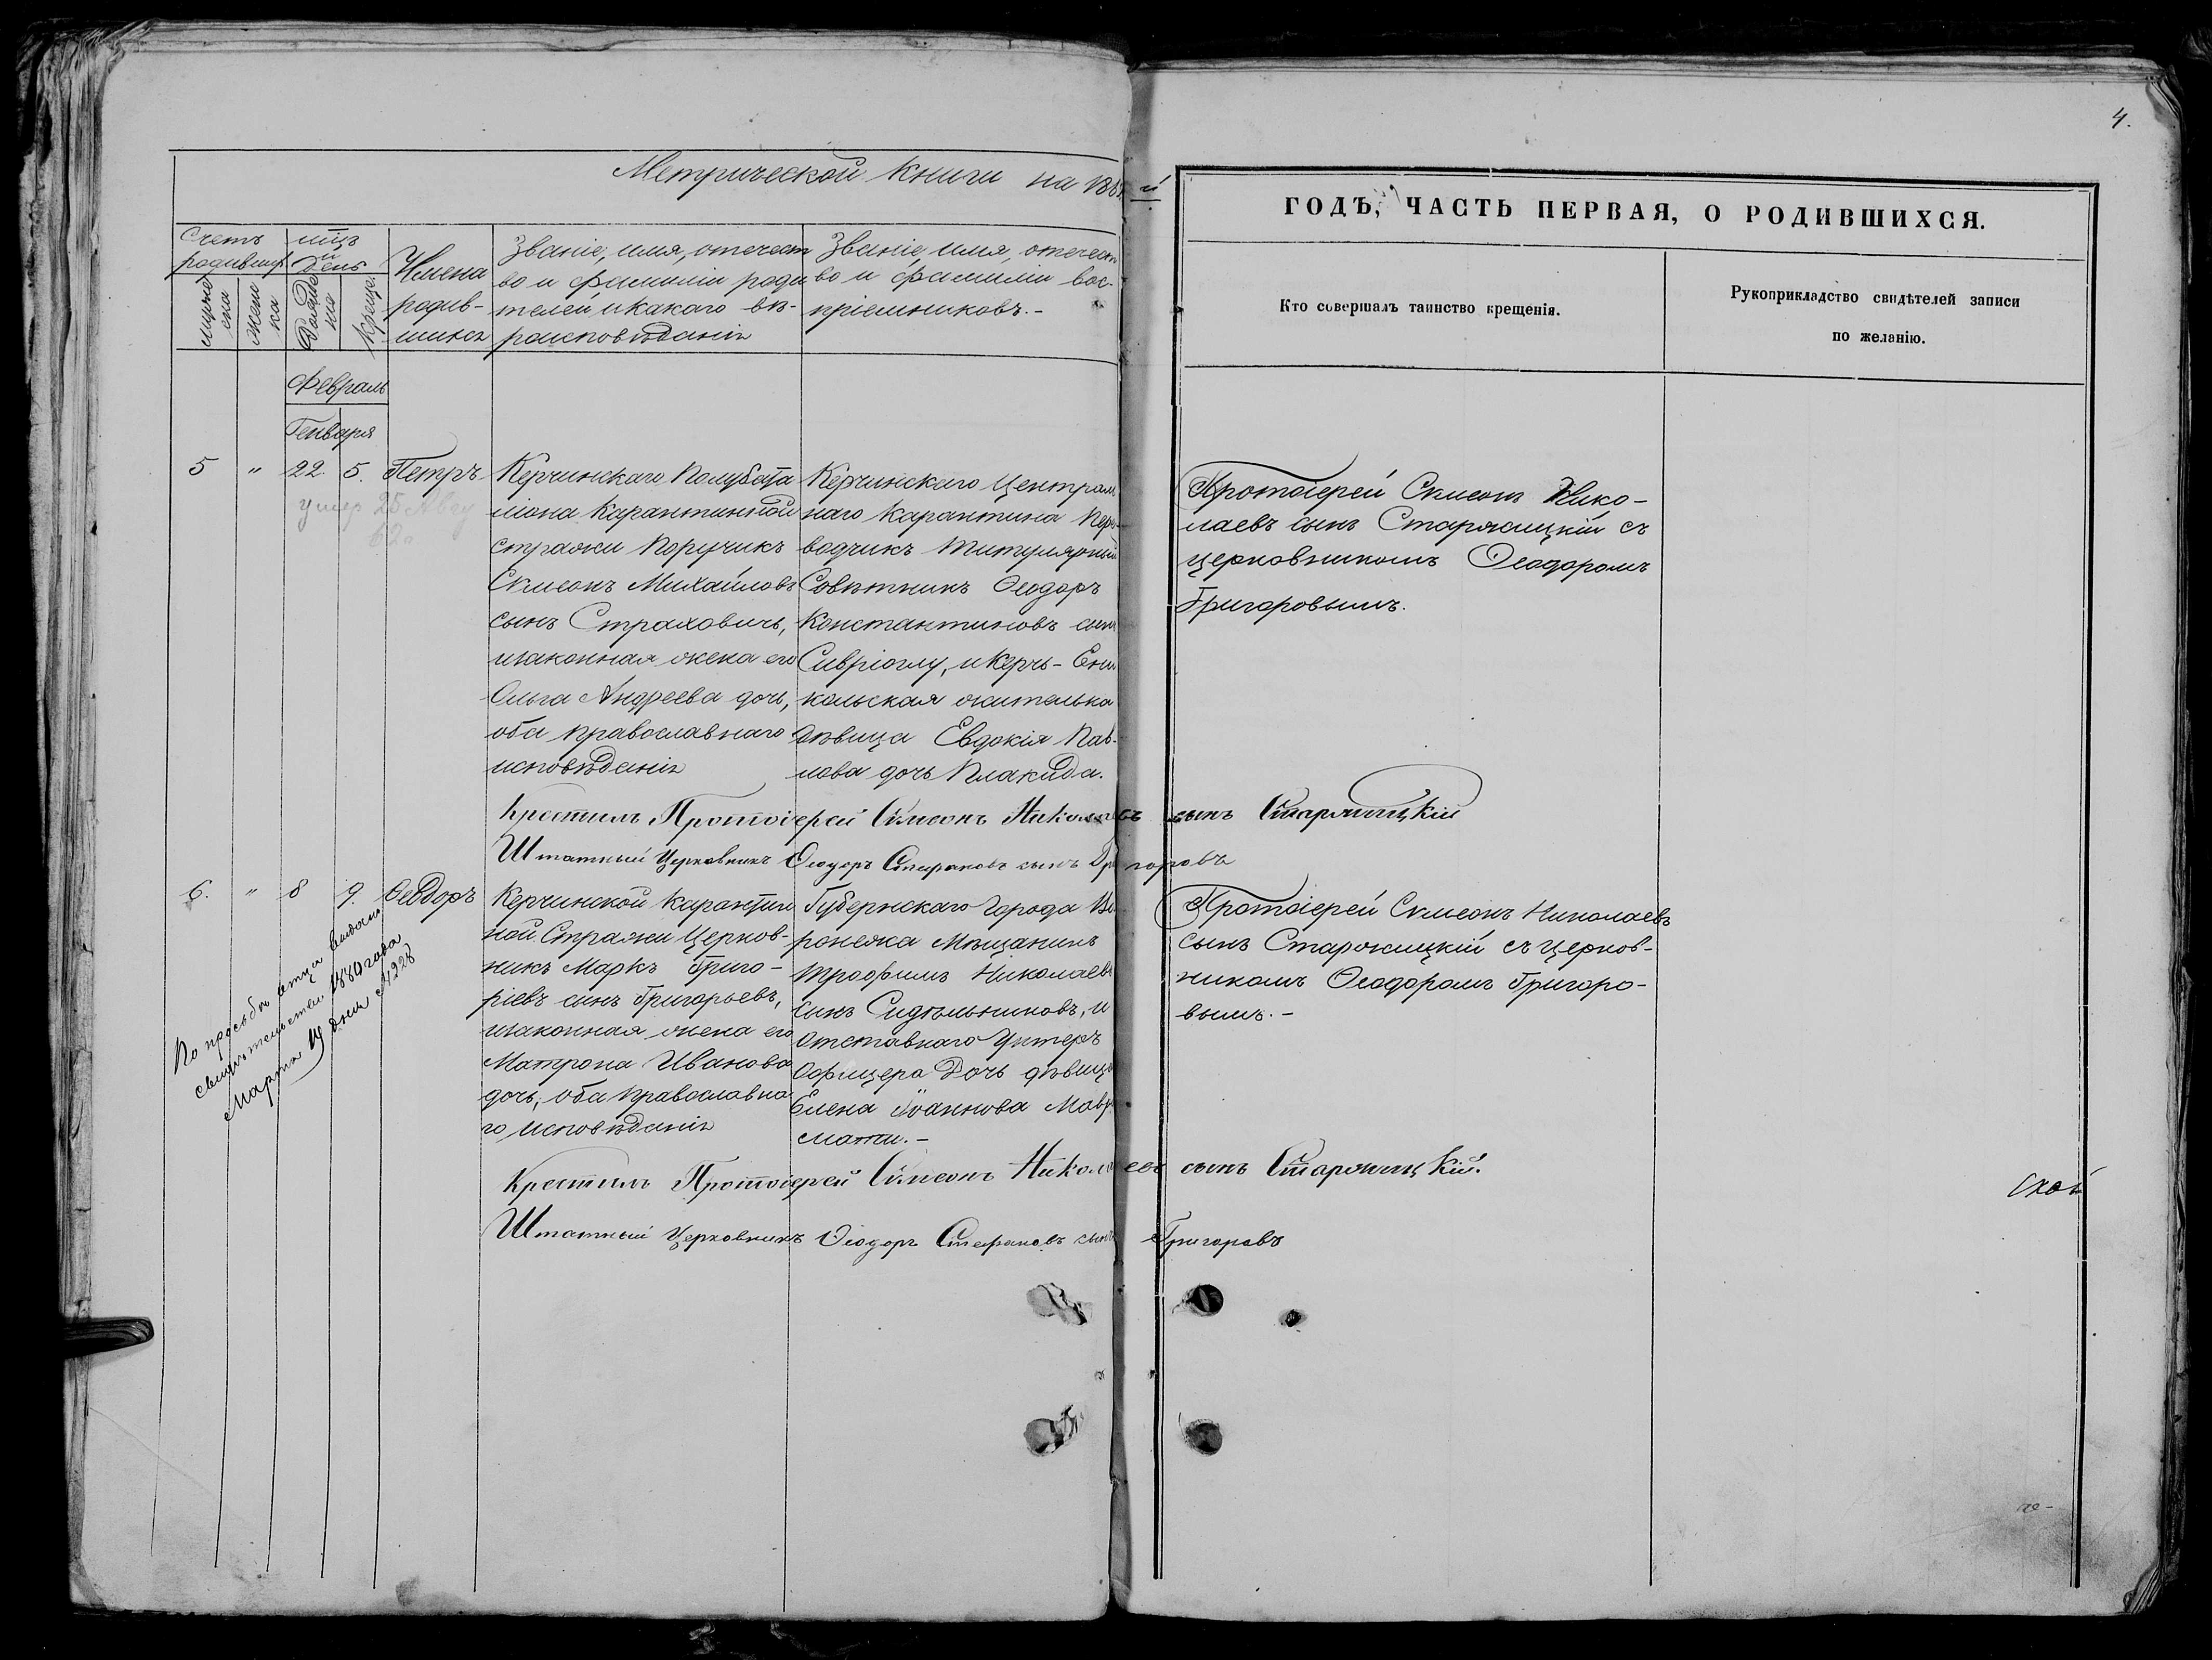 4.
Метрической книги на 185 й
ГОДЪ, ЧАСТЬ ПЕРВАЯ, О РОДИВШИХСЯ.
Счетъ
родивших
мцъ
и
день
мужеска
женска
Рожденія
Крещен.
Имена
родив-
шихся
Званіе, имя, отечест
во и фамилія роди
телей и какаго вѣ-
роисповѣданія
Званіе, имя, отечест
во и фамилія вос-
пріемниковъ.-
Кто совершалъ таинство крещенія.
Рукоприкладство свидѣтелей записи
по желанію.
Февраль
Генваря
5 " 22. 5. Петръ
умер 25 Авгу
62 г
Керчинскаго Полубата
ліона Карантинной
стражи Поручикъ
Симеонъ Михайловъ
сынъ Страховичъ,
изаконная жена его
Ольга Андреева дочь,
оба православнаго
исповѣданія
Керчинскаго Централь
наго Карантина Пере-
водчикъ Титулярный
Совѣтникъ Ѳеодоръ
Константиновъ сынъ
Сивріоглу, и Керчь-Ени
кольская жителька
дѣвица Евдокія Пав-
лова дочь Плакида.
Протоіерей Симеонъ Нико-
лаевъ сынъ Старжицкій съ
церковникомъ Ѳеодоромъ
Григоровымъ.
Крестилъ Протоіерей Симеонъ Николаевъ сынъ Старжицкій
Штатный Церковникъ Ѳеодоръ Стефановъ сынъ Григоровъ
6. " 8 9. Ѳеодоръ
По просьбѣ отца выдано
свидѣтельство 1880 года
Марта 19 дня №228
Керчинской Карантин
ной Стражи Церков-
никъ Маркъ Григо-
ріевъ сынъ Григорьевъ,
изаконная жена его
Матрона Иванова
дочь, оба православна
го исповѣданія
Губернскаго Города Во
ронежа Мѣщанинъ
Трофимъ Николаевъ
сынъ Сидѣльниковъ, и
отставнаго Унтеръ
Офицера Дочь дѣвица
Елена Іоаннова Мавро
мати.-
Протоіерей Симеонъ Николаевъ
сынъ Старжицкій съ церков-
никомъ Ѳеодоромъ Григоро-
вымъ.-
Крестилъ Протоіерей Симеонъ Николаевъ сынъ Старжицкій.
Штатный Церковникъ Ѳеодоръ Стефановъ сынъ Григоровъ
ской